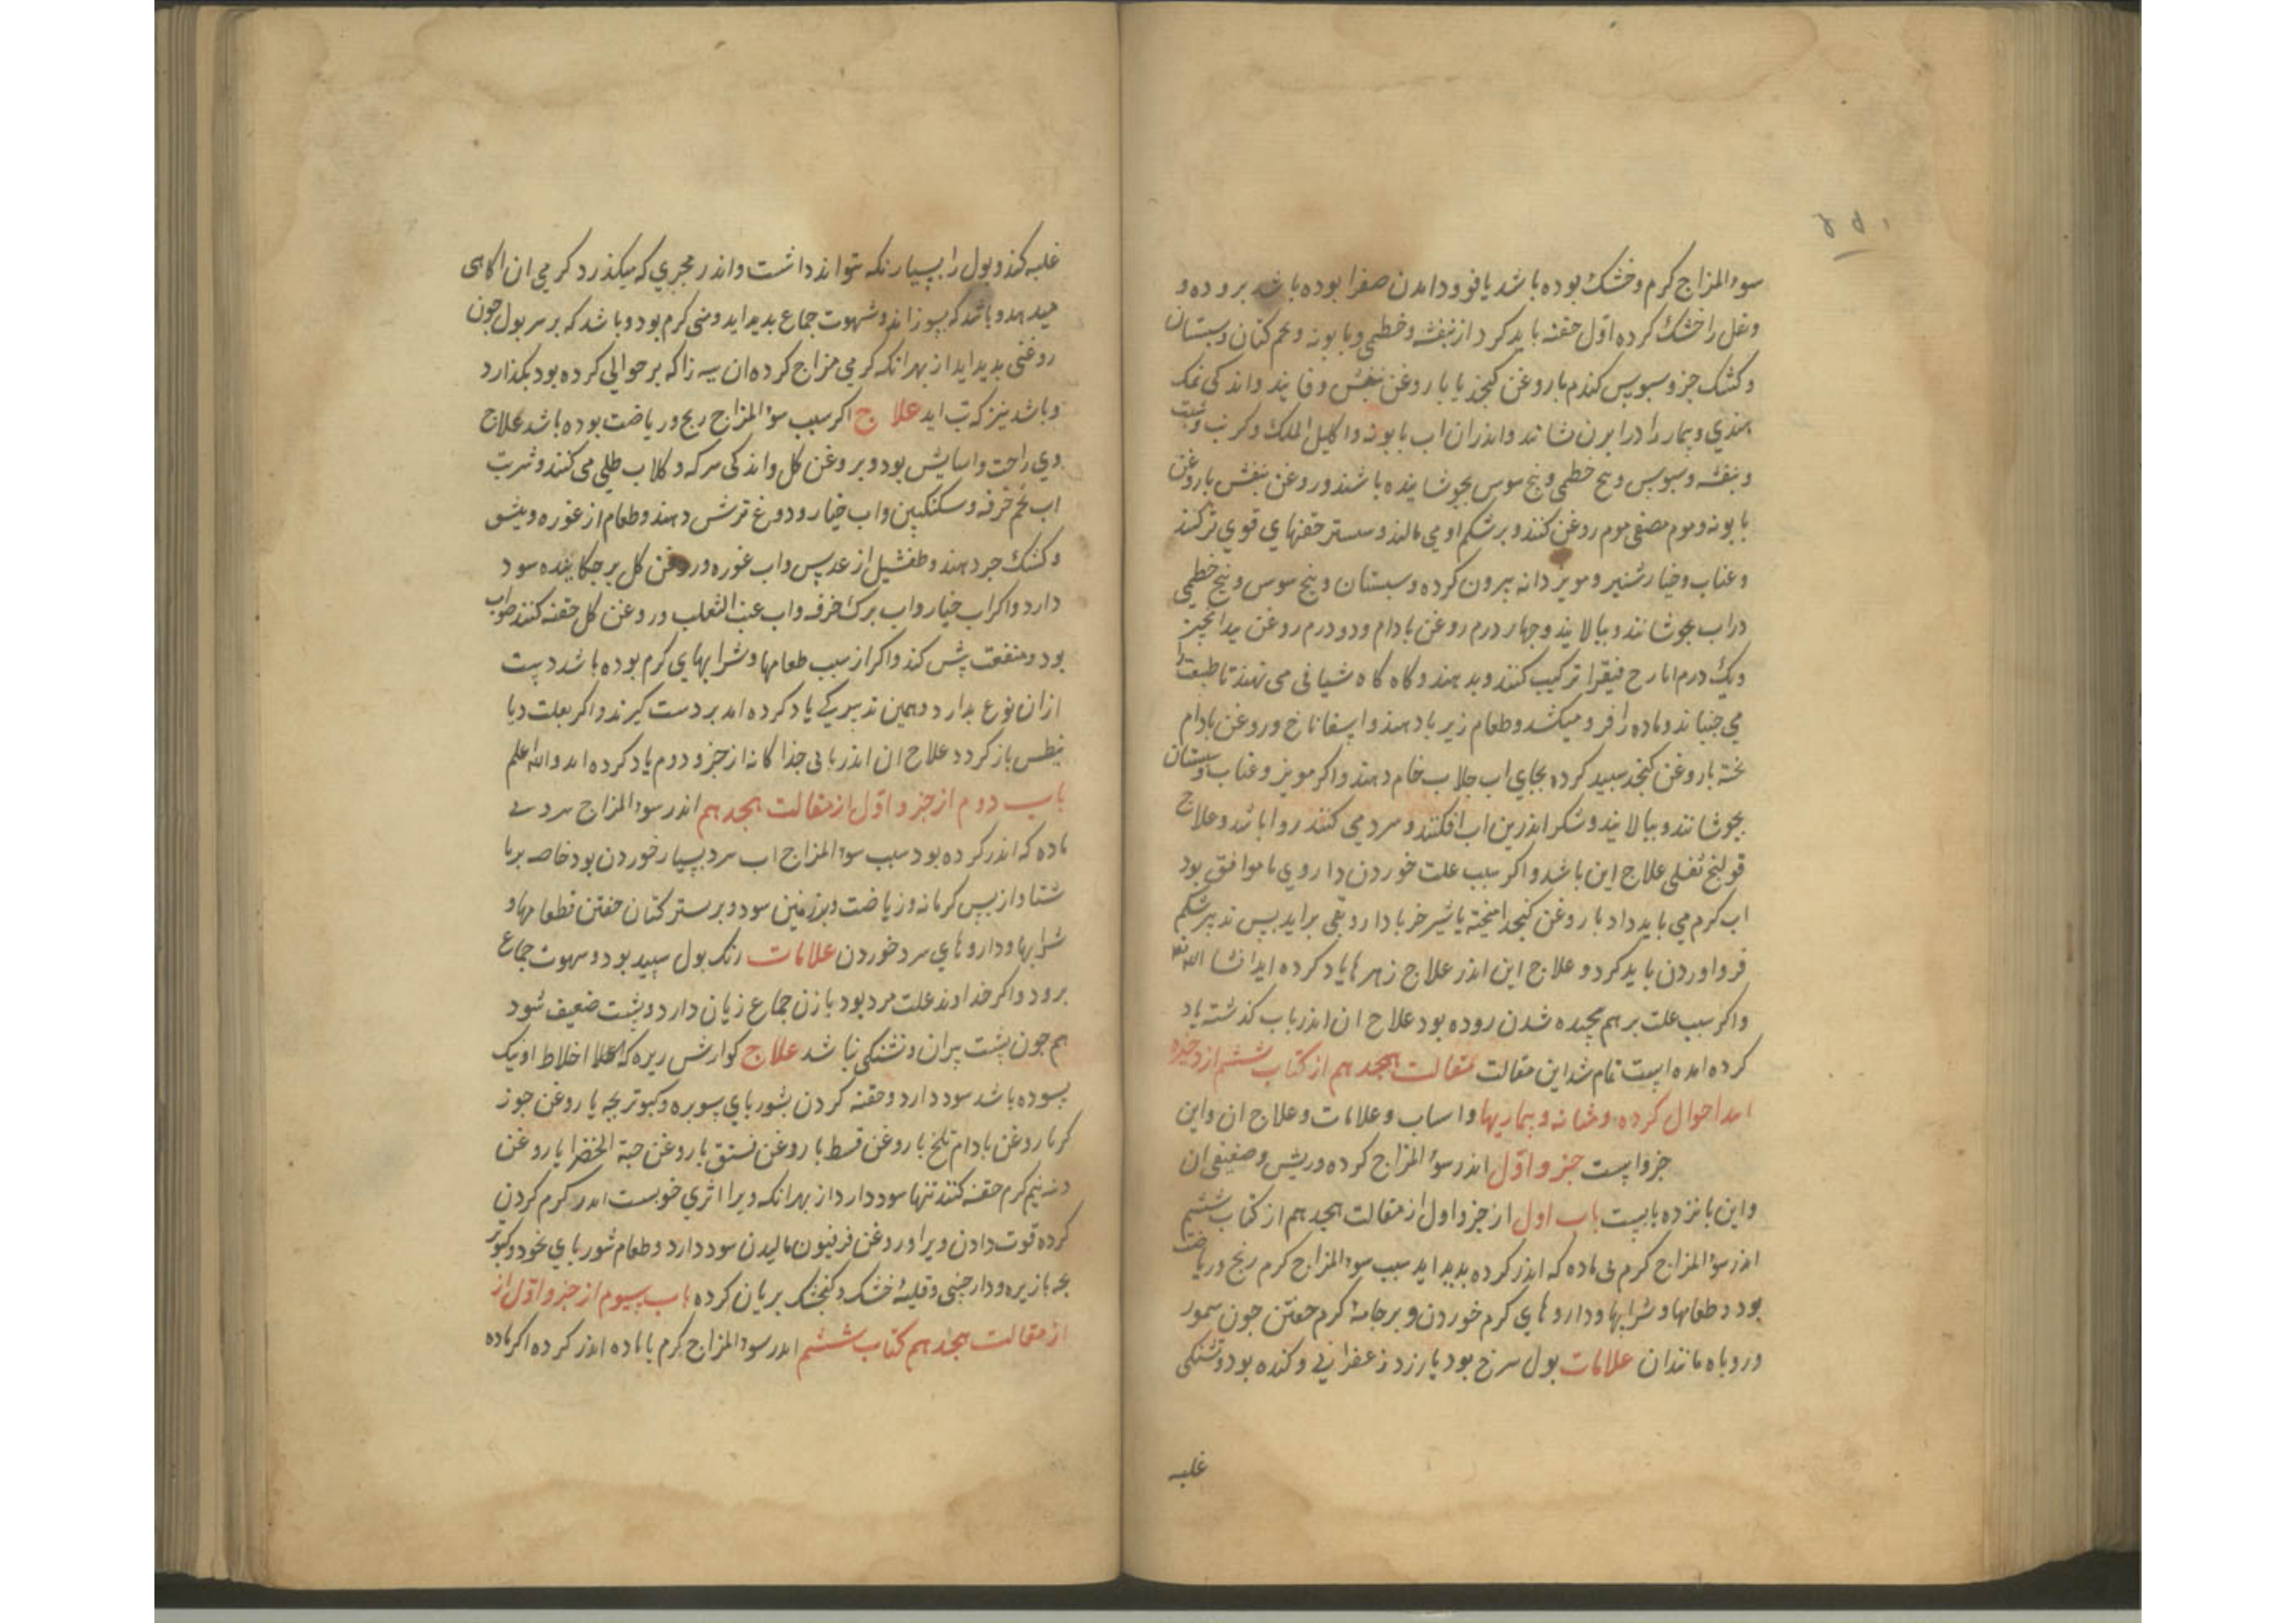 سوء المزاج کرم و خشک بوده باشد یا فرود امدن صفرا بوده باشد بر روده و
و ثفل را خشک کرده اول حقنه باید کرد از بنفشه و خطمی و بابونه و تخم کتان و سبستان
و کشک جو و سبوس کندم با روغن کنجد یا با روغن بنفش و فانید و اندکی نمک
هندی و بیمار را در ابزن نشانند و اندران اب بابونه و اکلیل الملک و کرنب و شبت
و بنفشه و سبوس و بیخ خطمی و بیخ سوس بجوشانیده باشند و روغن بنفش با روغن
بابونه و موم مصفی موم روغن کنند و بر شکم او می مالند و سستر حقنهای قوی تر کنند
و عناب و خیار شنبر و مویز دانه بیرون کرده و سبستان و بیخ سوس و بیخ خطمی
در اب بجوشانند و ببالایند و چهار درم روغن بادام و دو درم روغن بیدانجیر
و یک درم ایارج فیقرا ترکیب کنند و بدهند و کاه کاه شیافی می نهند تا طبیعت را
می جنباند و ماده را فرو میکشد و طعام زیر با دهند و اسفاناخ و روغن بادام
بخته با روغن کنجد سبید کرده بجای اب جلاب خام دهند و اکر مویز و عناب و سبستان
بجوشانند و ببالایند و شکر اندرین اب افکنند و سرد می کنند روا باشد و علاج
قولنج ثفلی علاج این باشد و اکر سبب علت خوردن داروی ناموافق بود
اب کرم می باید داد با روغن کنجد امیخته یا شیر خر با دارو بقی براید بس تدبیر شکم
فرو اوردن باید کرد و علاج این اندر علاج زهرها یاد کرده اید انشا الله تعا
و اکر سبب علت بر هم بیچیده شدن روده بود علاج ان اندر باب کذشته یاد
کرده امده است تمام شد این مقالت مقالت هجدهم از کتاب ششم از ذخیره
اندر احوال کرده و مثانه و بیماریها و اسباب و علامات و علاج ان و این
جزو است جزو اول اندر سوء المزاج کرده و ریش و ضعیفی ان
و این بانزده بابست باب اول از جزو اول از مقالت هجدهم از کتاب ششم
اندر سوء المزاج کرم بی ماده که اندر کرده بدید اید سبب سوء المزاج کرم رنج و ریاضت
بود و طعامها و شرابها و داروهای کرم خوردن و بر جامه کرم خفتن چون سمور
و روباه مانندان علامات بول سرخ بود یا زرد زعفرانی و کنده بود و تشنکی
غلبه
غلبه کند و بول را بسیار نکه نتواند داشت و اندر مجری که میکذرد کرمی ان اکاهی
میدهد و باشد که بسوزاند و شهوت جماع بدید اید و منی کرم بود و باشد که بر سر بول چون
روغنی بدید اید از بهر انکه کرمی مزاج کرده ان بیه را که بر حوالی کرده بود بکدازد
و باشد نیز که تب اید علاج اکر سبب سوء المزاج رنج و ریاضت بوده باشد علاج
وی راحت و اسایش بود و بروغن کل و اندکی سرکه و کلاب طلی می کنند و شربت
اب تخم خرفه و سکنکبین و اب خیار و دوغ ترش دهند و طعام از غوره و نیشو
و کشک جو دهند و طفشیل از عدس و اب غوره و روغن کل بر چکانیده سود
دارد و اکر اب خیار و اب برک خرفه و اب عنب الثعلب و روغن کل حقنه کنند صواب
بود و منفعت بیش کند و اکر از سبب طعامها و شرابهای کرم بوده باشد دست
ازان نوع بدارد و همین تدبیر که یاد کرده امد بر دست کیرند و اکر بعلت دیا
بیطس باز کردد علاج ان اندر بابی جدا کانه از جزو دوم یاد کرده امد والله اعلم
باب دوم از جزو اول از مقالت هجدهم اندر سوء المزاج سرد بی
ماده که اندر کرده بود سبب سوء المزاج اب سرد بسیار خوردن بود خاصه بر نا
شتا و از بس کرمابه و ریاضت و بر زمین سرد و بر بستر کتان خفتن و طعامها و
شرابها و داروهای سرد خوردن علامات رنک بول سبید بود و شهوت جماع
برود و اکر خداوند علت مرد بود با زن جماع زیان دارد و بشت ضعیف شود
هم چون بشت بیران و تشنکی نباشد علاج کوارش زیره که اخلاط او نیک
سوده باشد سود دارد و حقنه کردن بشوربای و کبوتر بچه با روغن جوز
کر با روغن بادام تلخ با روغن قسط با روغن فستق با روغن حبة الخضرا با روغن
دنبه نیم کرم حقنه کنند تنها سود دارد از بهر انکه ویرا اثری خوبست اندر کرم کردن
کرده قوت دادن ویرا و روغن فرفیون مالیدن سود دارد و طعام شوربای نخود و کبوتر
بچه با زیره و دارچینی و قلیه خشک و کنجشک بریان کرده باب سیوم از جزو اول از
از مقالت هجدهم کتاب ششم اندر سوء المزاج کرم با ماده اندر کرده اکر ماده